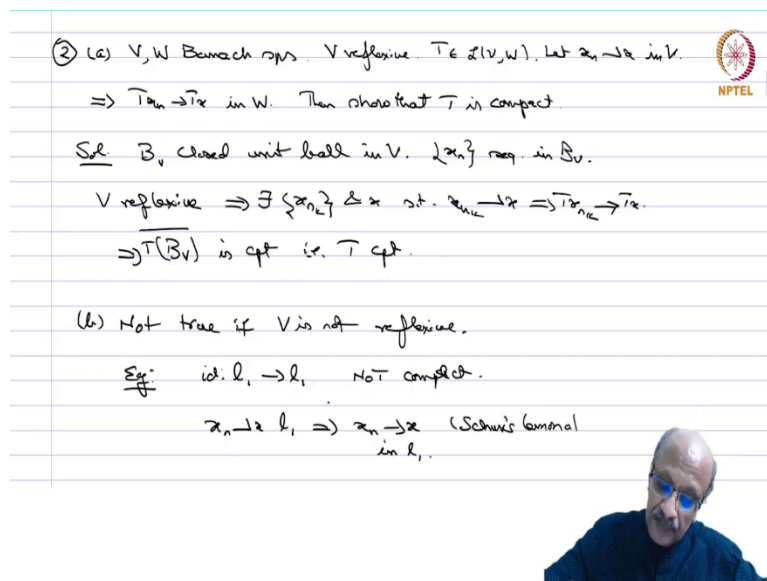 ② (a) V, W Banach sps. V reflexive. T ∈ L(V,W). Let xₙ ⇀ x in V.
NPTEL
⇒ Txₙ → Tx in W. Then show that T is compact.
Sol. B_V closed unit ball in V. {xₙ} seq. in B_V.
V reflexive ⇒ ∃ {x_{n_k}} & x s.t. x_{n_k} ⇀ x ⇒ Tx_{n_k} → Tx.
⇒ \overline{T(B_V)} is cpt i.e. T cpt.
(b) Not true if V is not reflexive.
Eg: id: l₁ → l₁ NOT compact.
xₙ ⇀ x l₁ ⇒ xₙ → x (Schur's lemma)
in l₁.